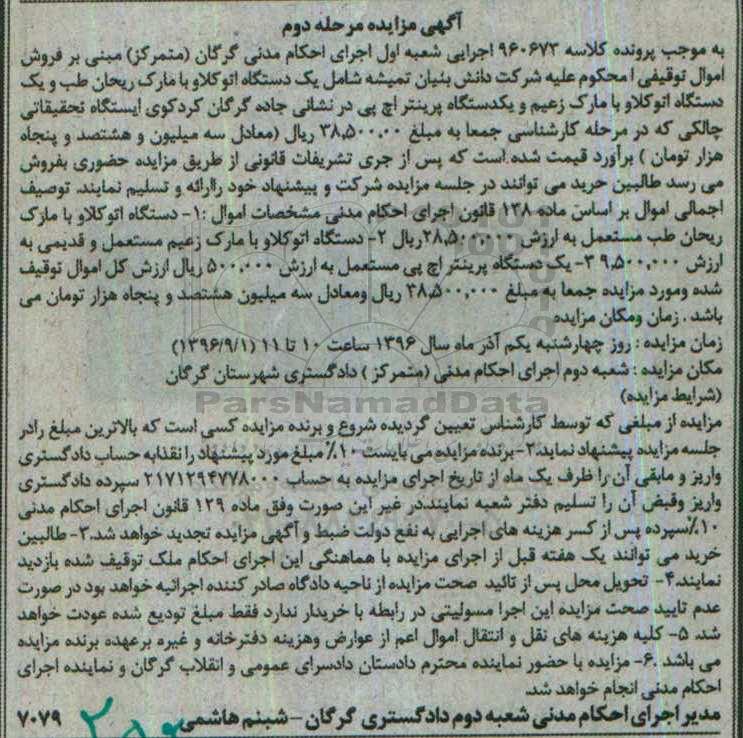 آگهی مزایده مرحله دوم
به موجب پرونده کلاسه ۹۶۰۶۷۳ اجرایی شعبه اول اجرای احکام مدنی گرگان (متمرکز) مبنی بر فروش
اموال توقیفی ا محکوم علیه شرکت دانش بنیان تمیشه شامل یک دستگاه اتوکلاو با مارک ریحان طب و یک
دستگاه اتوکلاو با مارک زعیم و یکدستگاه پرینتر اچ پی در نشانی جاده گرگان کردکوی ایستگاه تحقیقاتی
چالکی که در مرحله کارشناسی جمعا به مبلغ ۳۸,۵۰۰,۰۰ ریال (معادل سه میلیون و هشتصد و پنجاه
هزار تومان ) برآورد قیمت شده.است که پس از جری تشریفات قانونی از طریق مزایده حضوری بفروش
می رسد طالبین خرید می توانند در جلسه مزایده شرکت و پیشنهاد خود راارائه و تسلیم نمایند. توصیف
اجمالی اموال بر اساس ماده ۱۳۸ قانون اجرای احکام مدنی مشخصات اموال :۱- دستگاه اتوکلاو با مارک
ریحان طب مستعمل به ارزش ۲۸,۵۰۰,۰۰۰ریال ۲- دستگاه اتوکلاو با مارک زعیم مستعمل و قدیمی به
ارزش ۹,۵۰۰,۰۰۰ ۳- یک دستگاه پرینتر اچ پی مستعمل به ارزش ۵۰۰,۰۰۰ ریال ارزش کل اموال توقیف
شده ومورد مزایده جمعا به مبلغ ۳۸,۵۰۰,۰۰۰ ریال ومعادل سه میلیون هشتصد و پنجاه هزار تومان می
باشد . زمان ومکان مزایده
زمان مزایده : روز چهارشنبه یکم آذر ماه سال ۱۳۹۶ ساعت ۱۰ تا ۱۱ (۱۳۹۶/۹/۱)
مکان مزایده : شعبه دوم اجرای احکام مدنی (متمرکز ) دادگستری شهرستان گرگان
ParsNamadData
(شرایط مزایده)
مزایده از مبلغی که توسط کارشناس تعیین گردیده شروع و برنده مزایده کسی است که بالاترین مبلغ رادر
جلسه مزایده پیشنهاد نماید.۲- برنده مزایده می بایست ۱۰٪ مبلغ مورد پیشنهاد را نقدابه حساب دادگستری
واریز و مابقی آن را ظرف یک ماه از تاریخ اجرای مزایده به حساب ۲۱۷۱۲۹۴۷۷۸۰۰۰ سپرده دادگستری
واریز وقبض آن را تسلیم دفتر شعبه نمایند.در غیر این صورت وفق ماده ۱۲۹ قانون اجرای احکام مدنی
۱۰٪سپرده پس از کسر هزینه های اجرایی به نفع دولت ضبط و آگهی مزایده تجدید خواهد شد.۳- طالبین
خرید می توانند یک هفته قبل از اجرای مزایده با هماهنگی این اجرای احکام ملک توقیف شده بازدید
نمایند.۴- تحویل محل پس از تائید صحت مزایده از ناحیه دادگاه صادر کننده اجرائیه خواهد بود در صورت
عدم تایید صحت مزایده این اجرا مسولیتی در رابطه با خریدار ندارد فقط مبلغ تودیع شده عودت خواهد
شد. ۵- کلیه هزینه های نقل و انتقال اموال اعم از عوارض وهزینه دفترخانه و غیره برعهده برنده مزایده
می باشد .۶- مزایده با حضور نماینده محترم دادستان دادسرای عمومی و انقلاب گرگان و نماینده اجرای
احکام مدنی انجام خواهد شد.
مدیر اجرای احکام مدنی شعبه دوم دادگستری گرگان -شبنم هاشمی ۷۰۷۹